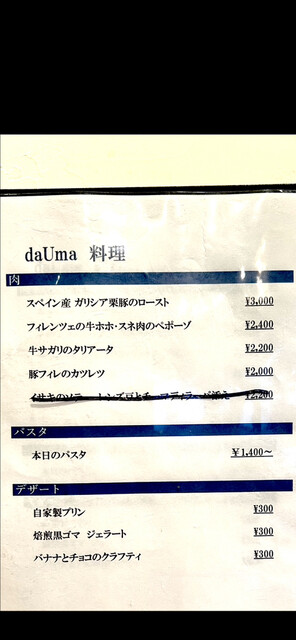 daUma 料理
肉
スペイン産 ガリシア栗豚のロースト ¥3,000
フィレンツェの牛ホホ・スネ肉のペポーゾ ¥2,400
牛サガリのタリアータ ¥2,200
豚フィレのカツレツ ¥2,000
イサキのソテー レンズ豆と ¥2,200
パスタ
本日のパスタ ¥1,400～
デザート
自家製プリン ¥300
焙煎黒ゴマ ジェラート ¥300
バナナとチョコのクラフティ ¥300